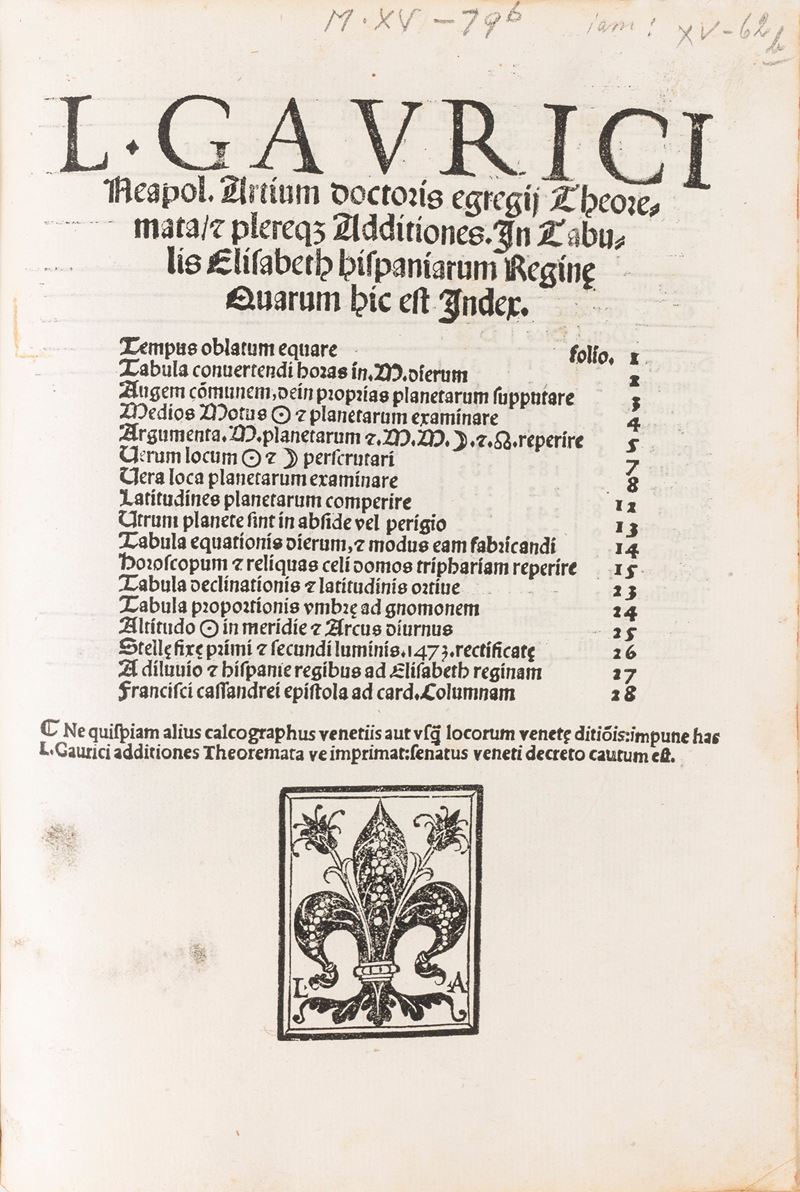 M · XV — 79b iam: XV - 62 b
L · GAVRICI
Neapol. Artium doctoris egregij Theore⸗
mata/⁊ plereqꝫ Additiones. In Tabu⸗
lis Elisabeth hispaniarum Reginę
Quarum hic est Index.
Tempus oblatum equare folio. 1
Tabula conuertendi horas in.M.dierum 2
Augem cõmunem,dein proprias planetarum supputare 3
Medios Motus ☉ ⁊ planetarum examinare 4
Argumenta.M.planetarum ⁊.M.M.☽.⁊.☊.reperire 5
Uerum locum ☉ ⁊ ☽ perscrutari 7
Uera loca planetarum examinare 8
Latitudines planetarum comperire 12
Utrum planete sint in abside vel perigio 13
Tabula equationis dierum,⁊ modus eam fabricandi 14
Horoscopum ⁊ reliquas celi domos triphariam reperire 15
Tabula declinationis ⁊ latitudinis ortiue 23
Tabula proportionis vmbrę ad gnomonem 24
Altitudo ☉ in meridie ⁊ Arcus diurnus 25
Stellę fixę primi ⁊ secundi luminis.1473.rectificatę 26
A diluuio ⁊ hispanie regibus ad Elisabeth reginam 27
Francisci cassandrei epistola ad card.Columnam 28
⁋ Ne quispiam alius calcographus venetiis aut vsq̃ locorum venetę ditiõis:impune has
L.Gaurici additiones Theoremata ve imprimat:senatus veneti decreto cautum est.
L A